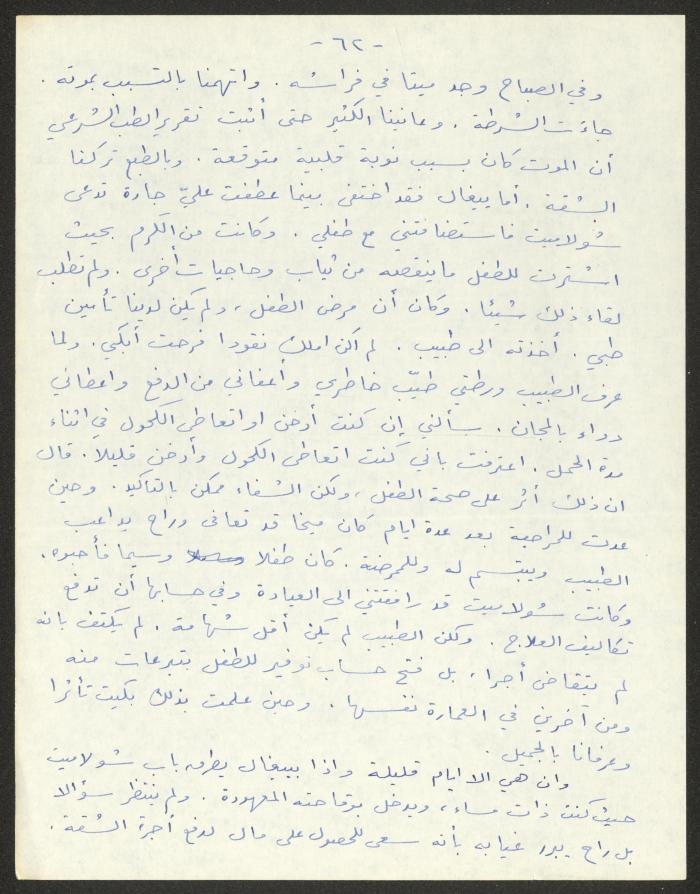 - ٦٢ -
وفي الصباح وجد ميتا في فراشه . واتهمنا بالتسبب بموته .
جاءت الشرطة . وعانينا الكثير حتى أثبت تقرير الطب الشرعي
أن الموت كان بسبب نوبة قلبية متوقعة . وبالطبع تركنا
الشقة . أما ييغال فقد اختفى بينما عطفت عليّ جارة تدعى
شولاميت فاستضافتني مع طفلي . وكانت من الكرم بحيث
اشترت للطفل ما ينقصه من ثياب وحاجيات أخرى . ولم تطلب
لقاء ذلك شيئا . وكان أن مرض الطفل ، ولم يكن لدينا تأمين
طبي . أخذته الى طبيب . لم اكن املك نقودا فرحت أبكي . ولما
عرف الطبيب ورطتي طيّب خاطري وأعفاني من الدفع واعطاني
دواء بالمجان . سألني إن كنت أدخن او اتعاطى الكحول في اثناء
مدة الحمل . اعترفت باني كنت اتعاطى الكحول وأدخن قليلا . قال
ان ذلك أثر على صحة الطفل ، ولكن الشفاء ممكن بالتأكيد . وحين
عدت للمراجعة بعد عدة ايام كان ميخا قد تعافى وراح يداعب
الطبيب ويبتسم له وللممرضة . كان طفلا وسيما فأحبوه .
وكانت شولاميت قد رافقتني الى العيادة وفي حسابها أن تدفع
تكاليف العلاج . ولكن الطبيب لم يكن أقل شهامة . لم يكتف بانه
لم يتقاض أجرا ، بل فتح حساب توفير للطفل بتبرعات منه
ومن آخرين في العمارة نفسها . وحين علمت بذلك بكيت تأثرا
وعرفانا بالجميل .
وان هي الا ايام قليلة واذا بييغال يطرق باب شولاميت
حيث كنت ذات مساء ، ويدخل بوقاحته المعهودة . ولم ينتظر سؤالا
بل راح يبرر غيابه بأنه سعى للحصول على مال لدفع أجرة الشقة .